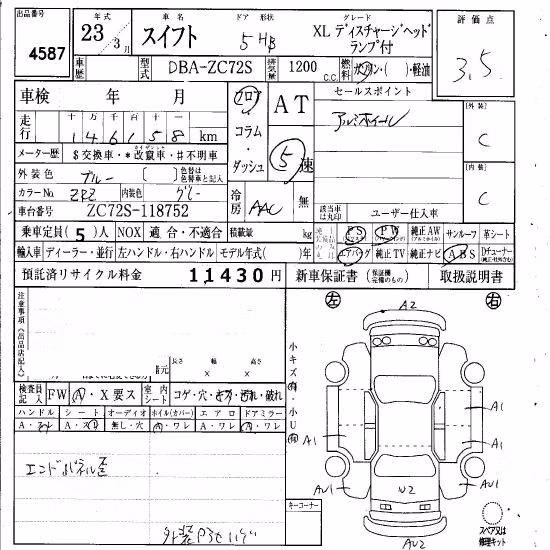 出品番号 年式 車名 ドア 形状 グレード 評価点
4587 23年 3月 スイフト 5 HB XL ディスチャージヘッドランプ付 3.5
車歴 型式 DBA-ZC72S 排気量 1200 c.c. 燃料 ガソリン・( )・軽油
車検 年 月 フロア AT セールスポイント 外装
走行 十万 万 千 百 十 一 コラム アルミホイール C
146158 km ダッシュ 5速
メーター歴 $交換車・*改竄車・#不明車 内装
外装色 ブルー 色替車 C
カラーNo. ZRZ 内装色 グレー 冷房 AAC 無 該当車は丸印 ユーザー仕入車
車台番号 ZC72S-118752
乗車定員(5)人 NOX 適合・不適合 積載量 kg PS PW 純正AW(アルミホイル) サンルーフ 革シート
輸入車 ディーラー・並行 左ハンドル・右ハンドル モデル年式( )年 エアバッグ 純正TV 純正ナビ ABS Dチューナー
預託済リサイクル料金 11,430円 新車保証書 取扱説明書
注意事項(出品店記入) 左 右
A2
長さ 幅 高さ
× ×
小キズ有 小U有
検査員記入 FW A・X要ス 室内シート コゲ・穴・キズ・汚れ・破れ
ハンドル シート オーディオ ホイル(カバー) エアロ ドアミラー
A・スレ A・スレ 無し・穴 A・ワレ A・ワレ A・ワレ
A1 A1
A1
エンドパネル歪
AU1 U2 AU1
キーコーナー
スペア又は修理キット
AU2